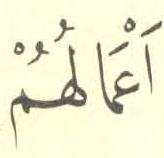 اَعْمَالُهُمْ